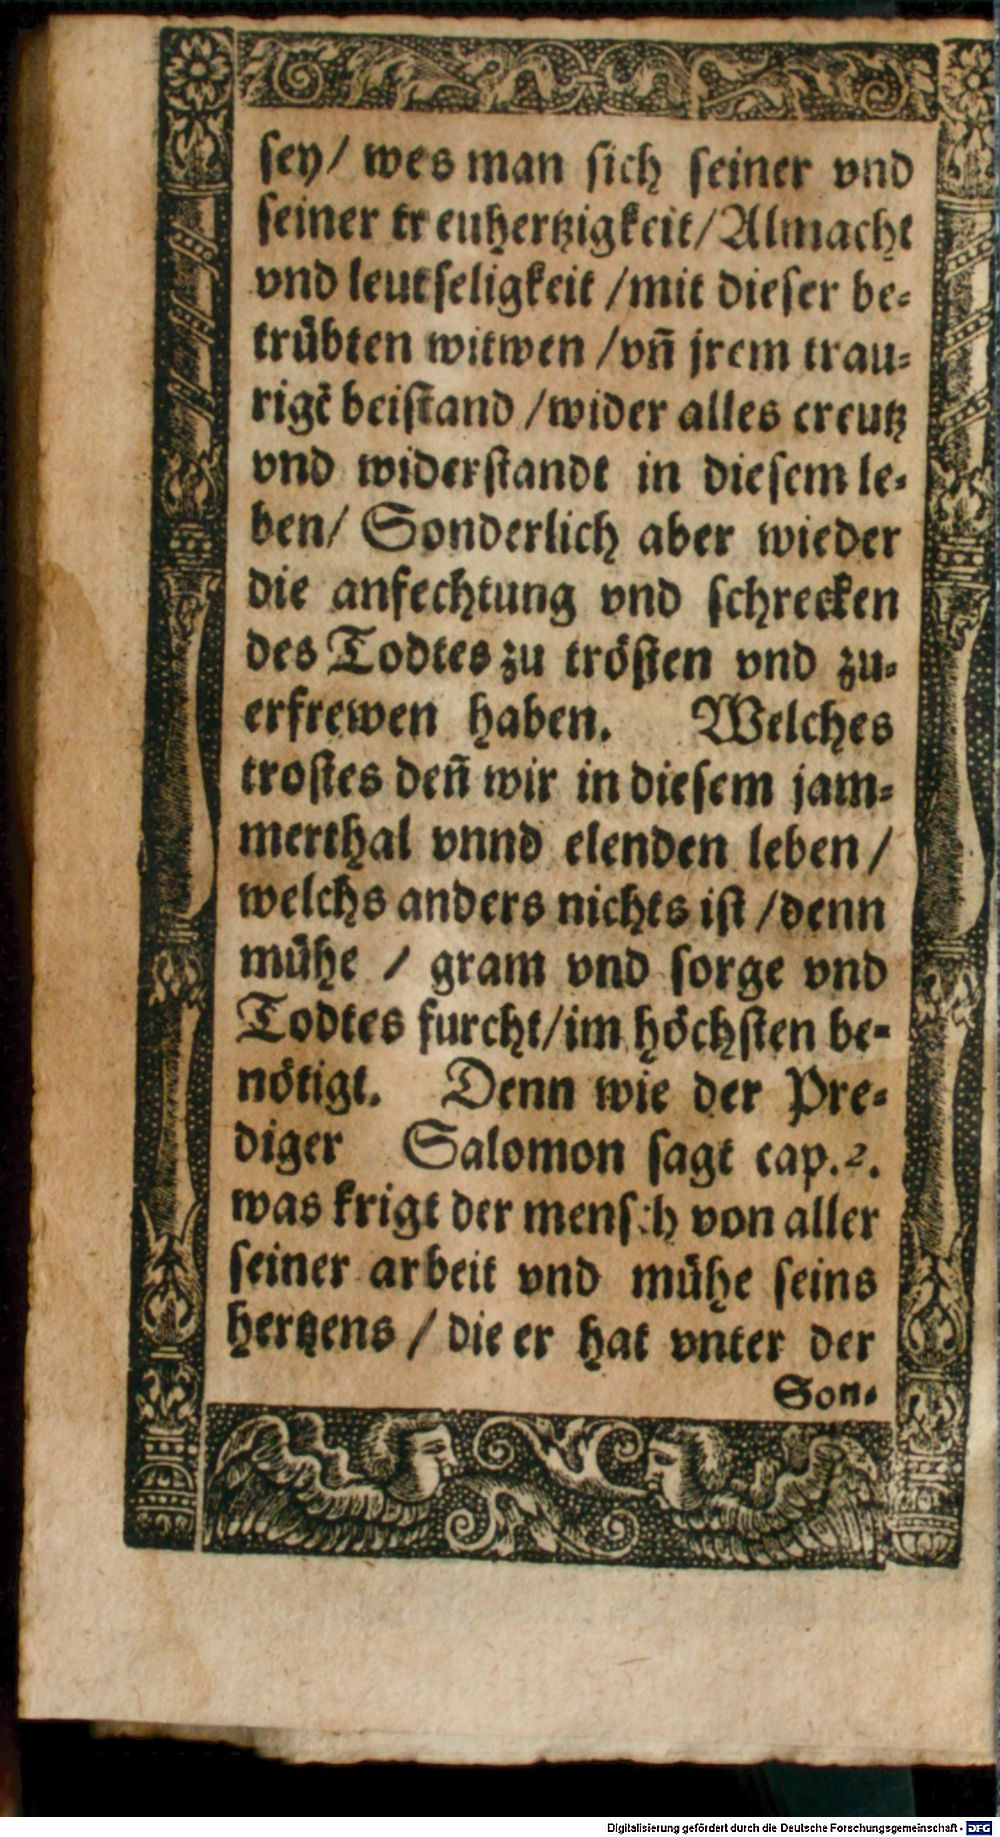 sey/ wes man sich seiner vnd
seiner tr euhertzigkeit/Almacht
vnd leutseligkeit /mit dieser be-
trübten witwen /vñ jrem trau-
rigẽ beistand /wider alles creutz
vnd widerstandt in diesem le-
ben/ Sonderlich aber wieder
die anfechtung vnd schrecken
des Todtes zu trösten vnd zu-
erfrewen haben. Welches
trostes deñ wir in diesem jam-
merthal vnnd elenden leben/
welchs anders nichts ist /denn
mühe / gram vnd sorge vnd
Todtes furcht/im höchsten be-
nötigt. Denn wie der Pre-
diger Salomon sagt cap.2.
was krigt der mensch von aller
seiner arbeit vnd mühe seins
hertzens / die er hat vnter der
Son-
Digitalisierung gefördert durch die Deutsche Forschungsgemeinschaft - DFG